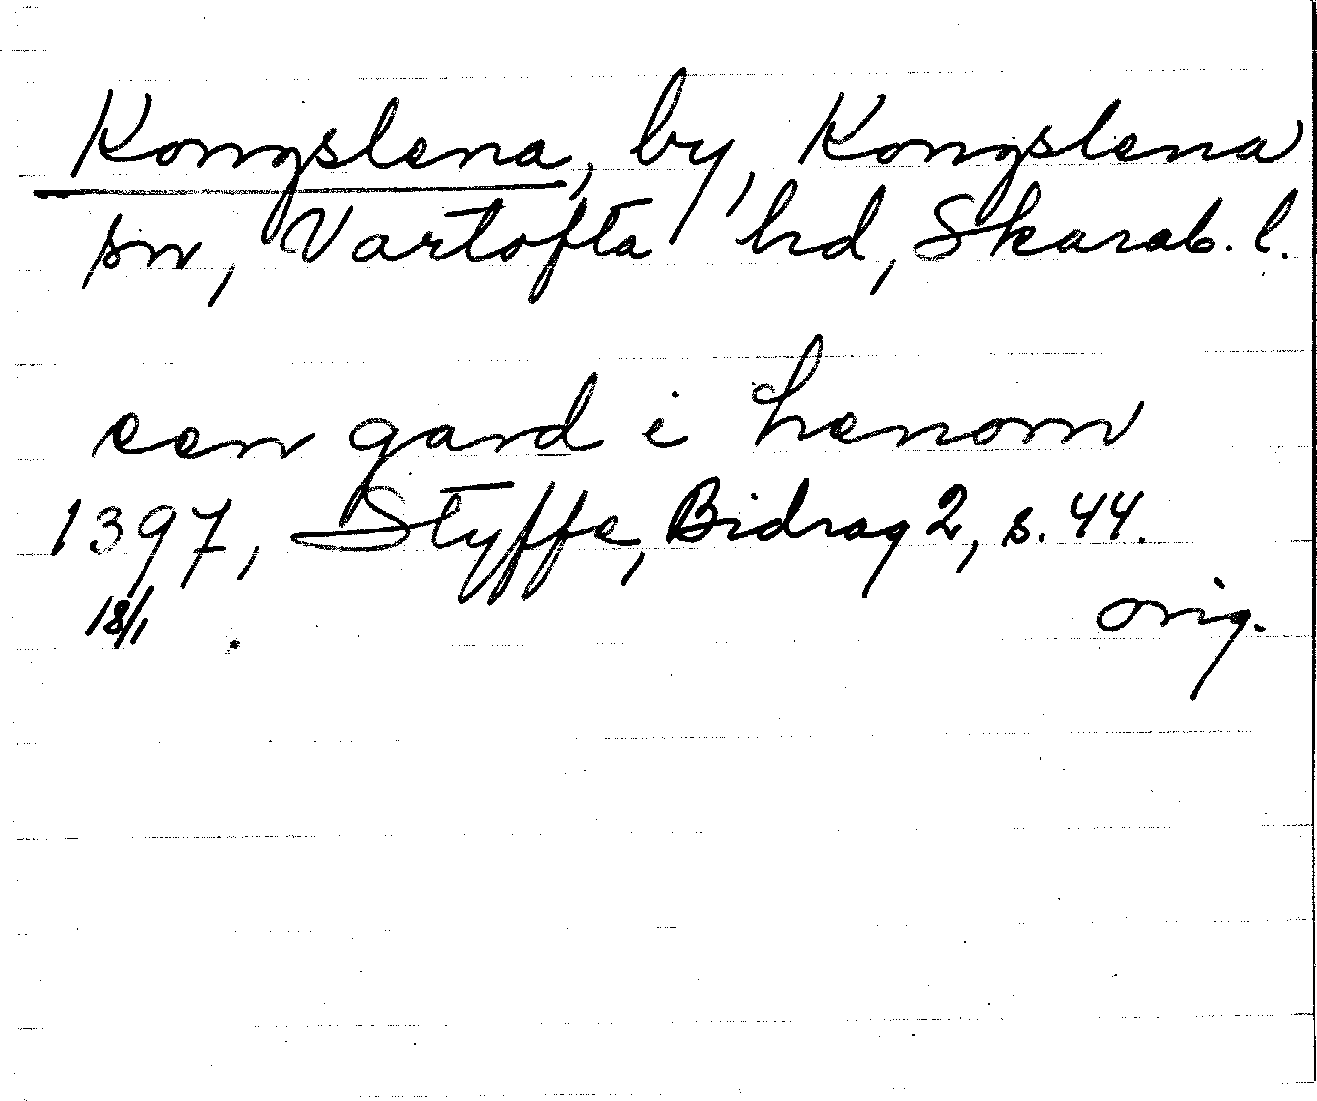 Kongslena, by, Kongslena
sn, Vartofta hd, Skarab. l.
een gard i henom
1397, Styffe, Bidrag 2, s. 44.
18/1 orig.